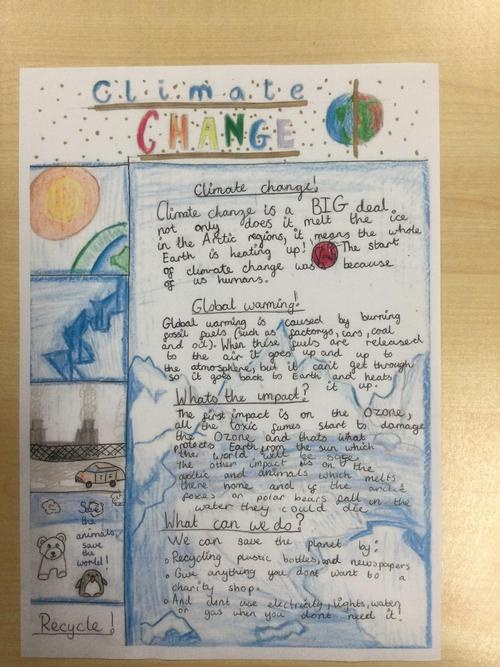 Climate
CHANGE
Climate change!
Climate change is a BIG deal,
not only does it melt the ice
in the Arctic regions, it means the whole
Earth is heating up! The start
of climate change was because
of us humans.
Global warming!
Global warming is caused by burning
fossil fuels (such as factorys, cars, coal
and oil). When these fuels are released
to the air it goes up and up to
the atmosphere, but it can't get through
so it goes back to Earth and heats
it up.
Whats the impact?
The first impact is on the Ozone,
all the toxic fumes start to damage
the Ozone and thats what
protects Earth from the sun which
the world well be safe.
The other impact is on the
arctic and animals which melts
there home and if the arctic
foxes or polar bears fall in the
water they could die.
What can we do?
We can save the planet by:
Recycling plastic bottles, and newspapers
Give anything you dont want to a
charity shop.
And dont use electricity, lights, water
or gas when you dont need it.
Save
the
animals,
save
the
world!
Recycle!